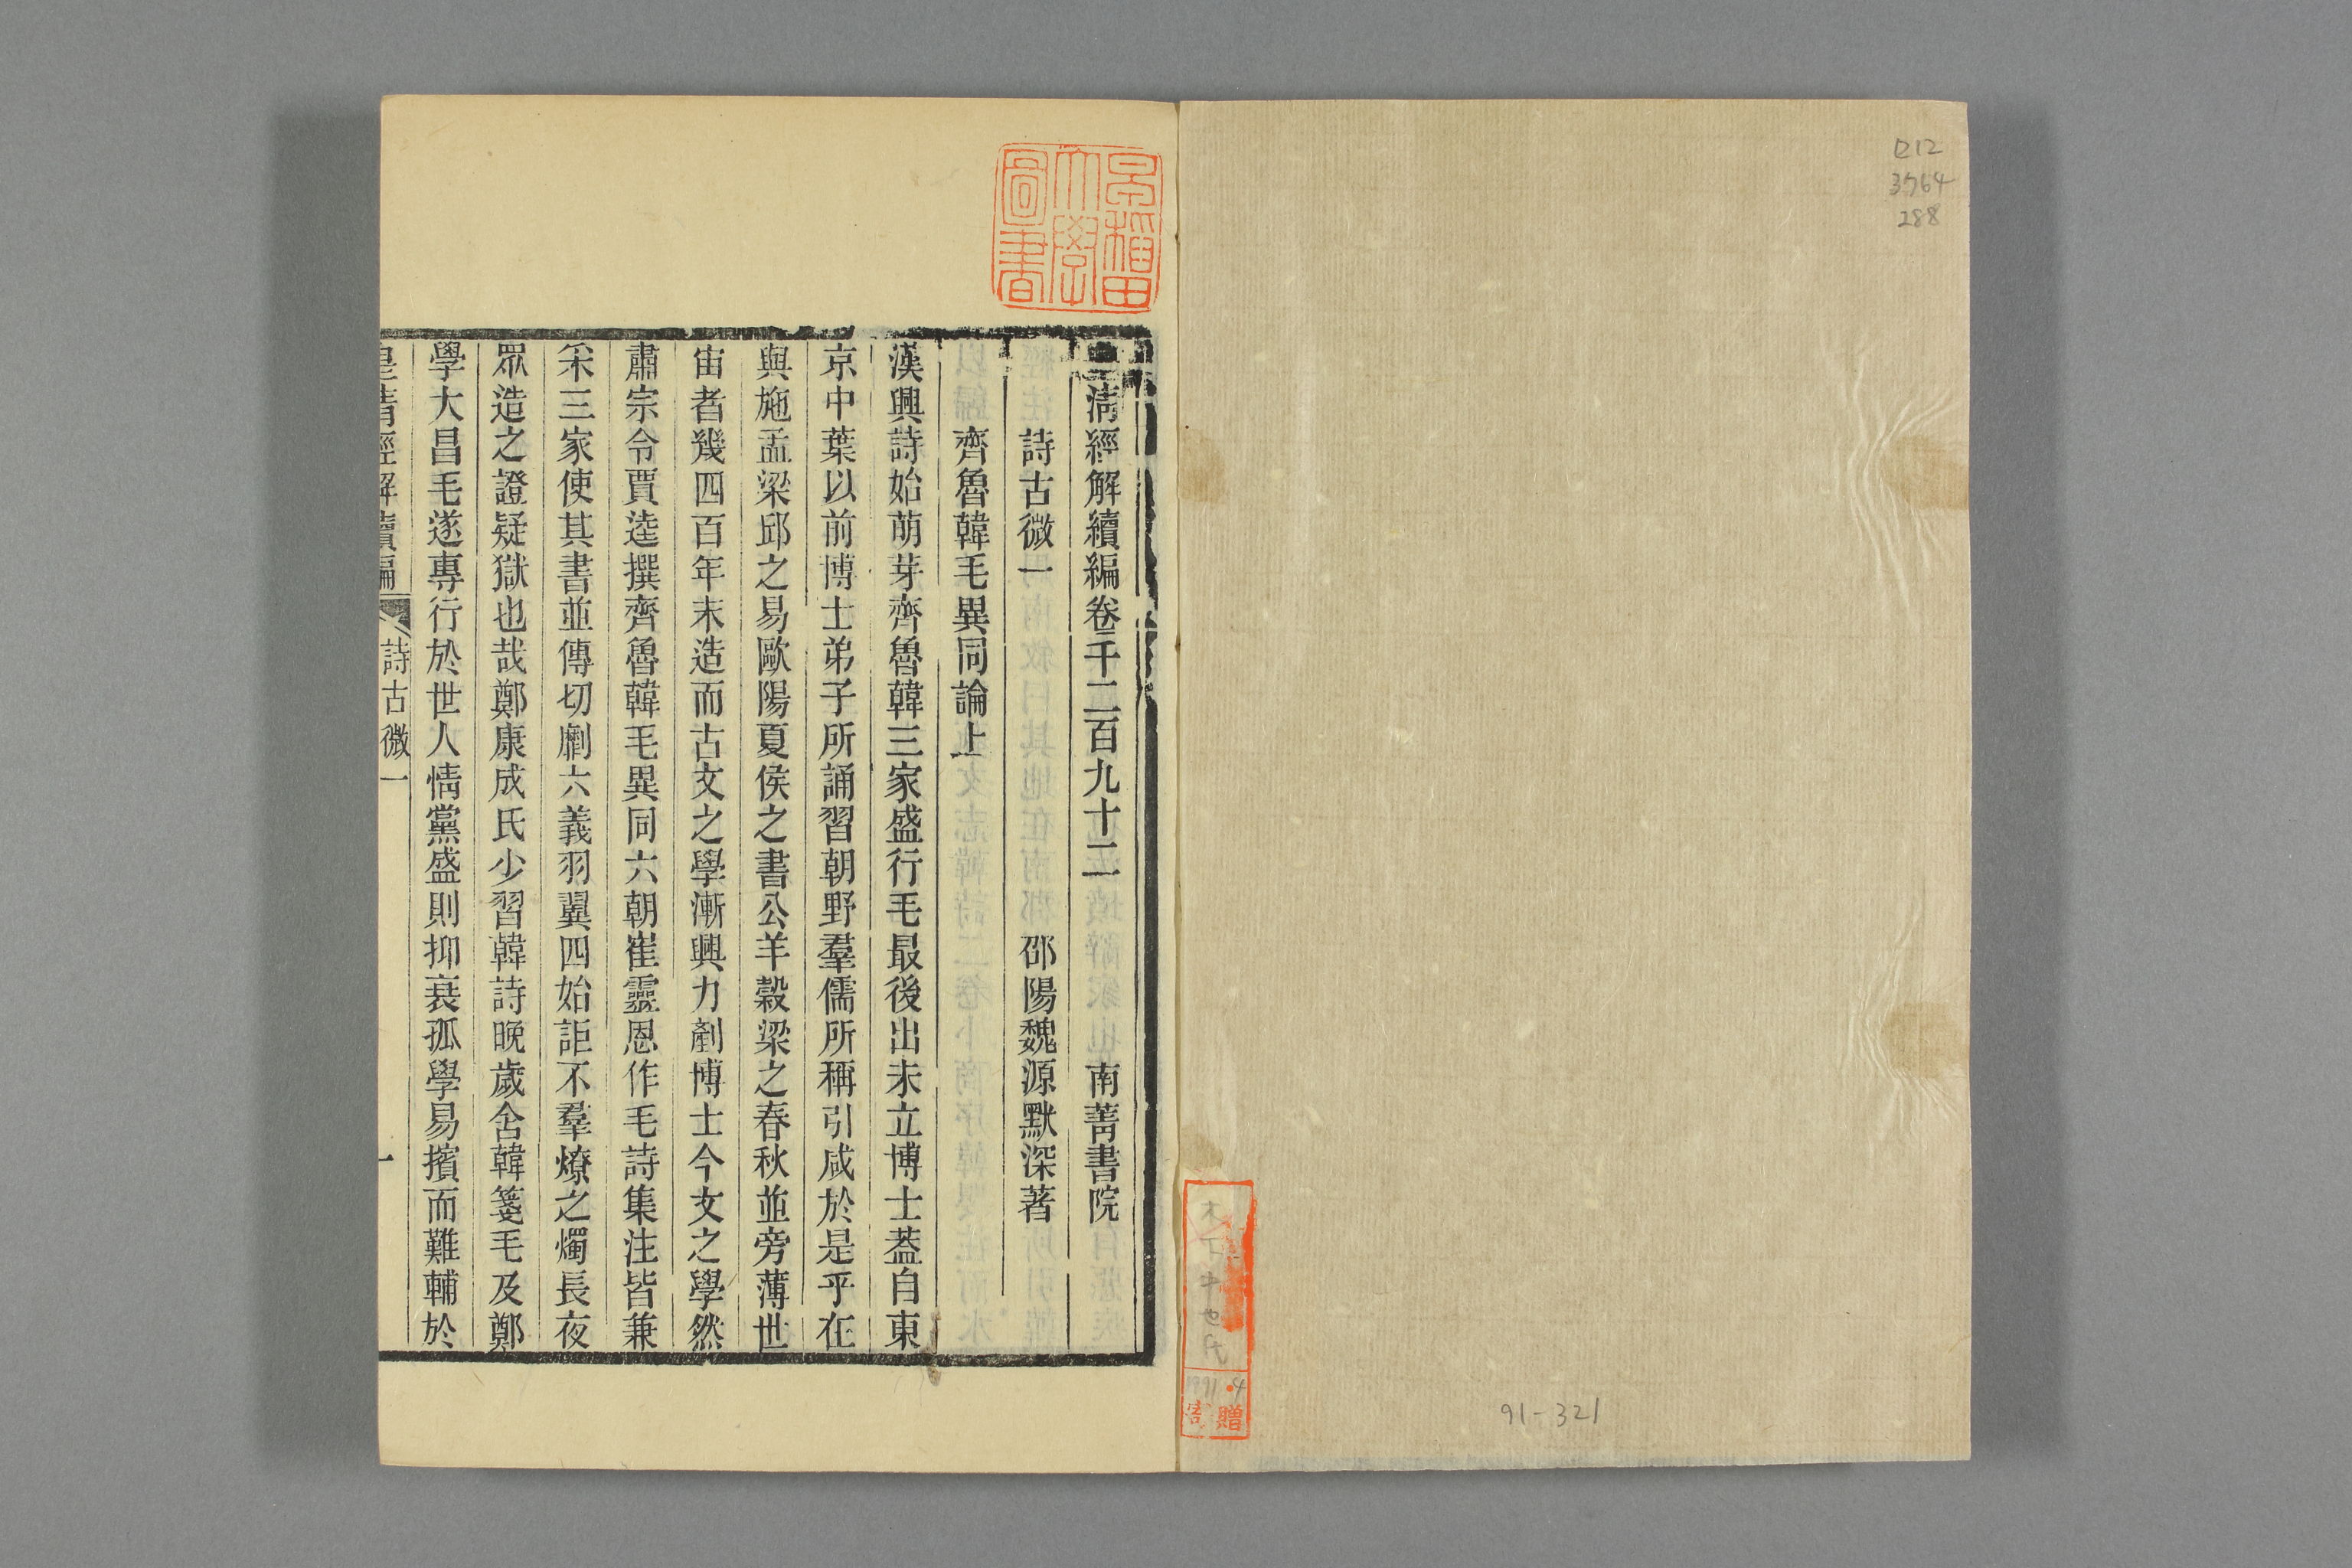 ロ12
3764
288
91-321
早稲田
大學
圖書
清經解續編卷千二百九十二 南菁書院
詩古微一 邵陽魏源默深著
齊魯韓毛異同論上
漢興詩始萌芽齊魯韓三家盛行毛最後出未立博士葢自東
京中葉以前博士弟子所誦習朝野羣儒所稱引咸於是乎在
與施孟梁邱之易歐陽夏侯之書公羊穀梁之春秋並旁薄世
宙者幾四百年末造而古文之學漸興力劀博士今文之學然
肅宗令賈逵撰齊魯韓毛異同六朝崔靈恩作毛詩集注皆兼
采三家使其書並傳切劘六義羽翼四始詎不羣燎之燭長夜
眾造之證疑獄也哉鄭康成氏少習韓詩晚歲舍韓箋毛及鄭
學大昌毛遂專行於世人情黨盛則抑衰孤學易擯而難輔於
皇清經解續編 詩古微一 一
寄贈